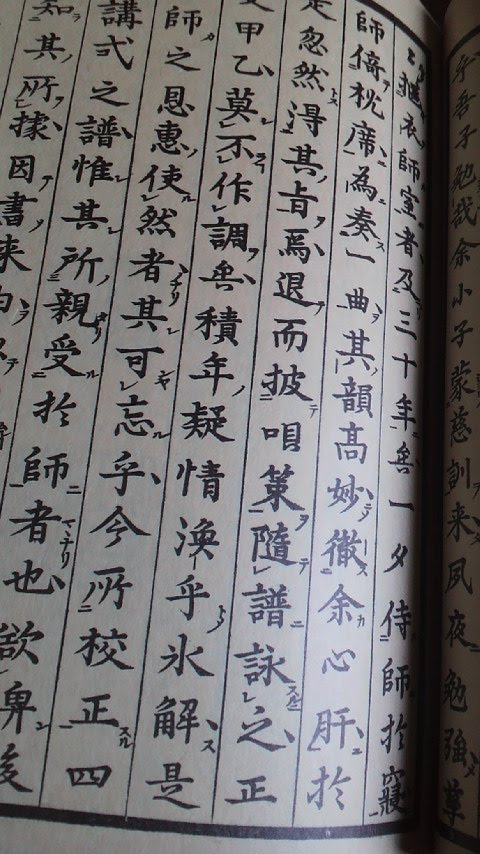 吾子勉哉余小子蒙慈訓来夙夜勉強
摳衣師室者及三十年矣一夕侍師於寢
師倚枕席為奏一曲其韻高妙徹余心肝於
是忽然得其旨焉退而披唄策隨譜詠之正
甲乙莫不作調矣積年疑情渙乎氷解是
師之恩惠使然者其可忘乎今所校正四
講式之譜惟其所親受於師者也欲卑後
知其所據因書来由